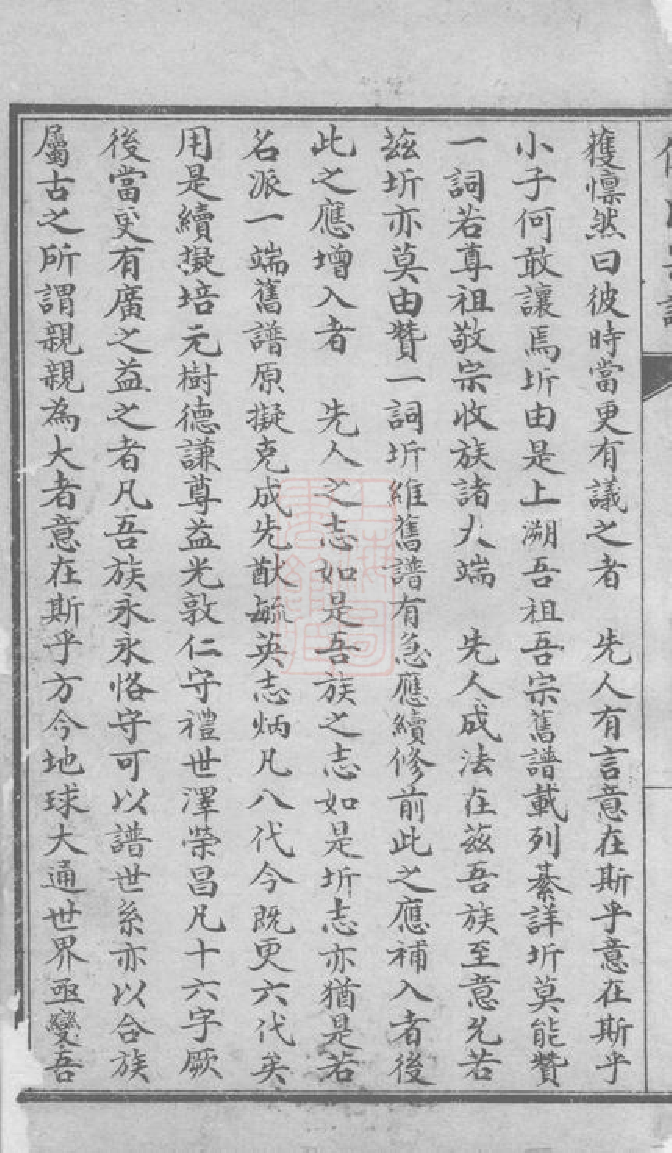 獲懍然曰彼時當更有議之者　先人有言意在斯乎意在斯乎
小子何敢讓焉圻由是上溯吾祖吾宗舊譜載列綦詳圻莫能贊
一詞若尊祖敬宗收族諸大端　先人成法在茲吾族至意尤若
茲圻亦莫由贊一詞圻維舊譜有急應續修前此之應補入者後
此之應增入者　先人之志如是吾族之志如是圻志亦猶是若
名派一端舊譜原擬克成先猷毓英志炳凡八代今既更六代矣
用是續擬培元樹德謙尊益光敦仁守禮世澤榮昌凡十六字厥
後當更有廣之益之者凡吾族永永恪守可以譜世系亦以合族
屬古之所謂親親為大者意在斯乎方今地球大通世界亟變吾